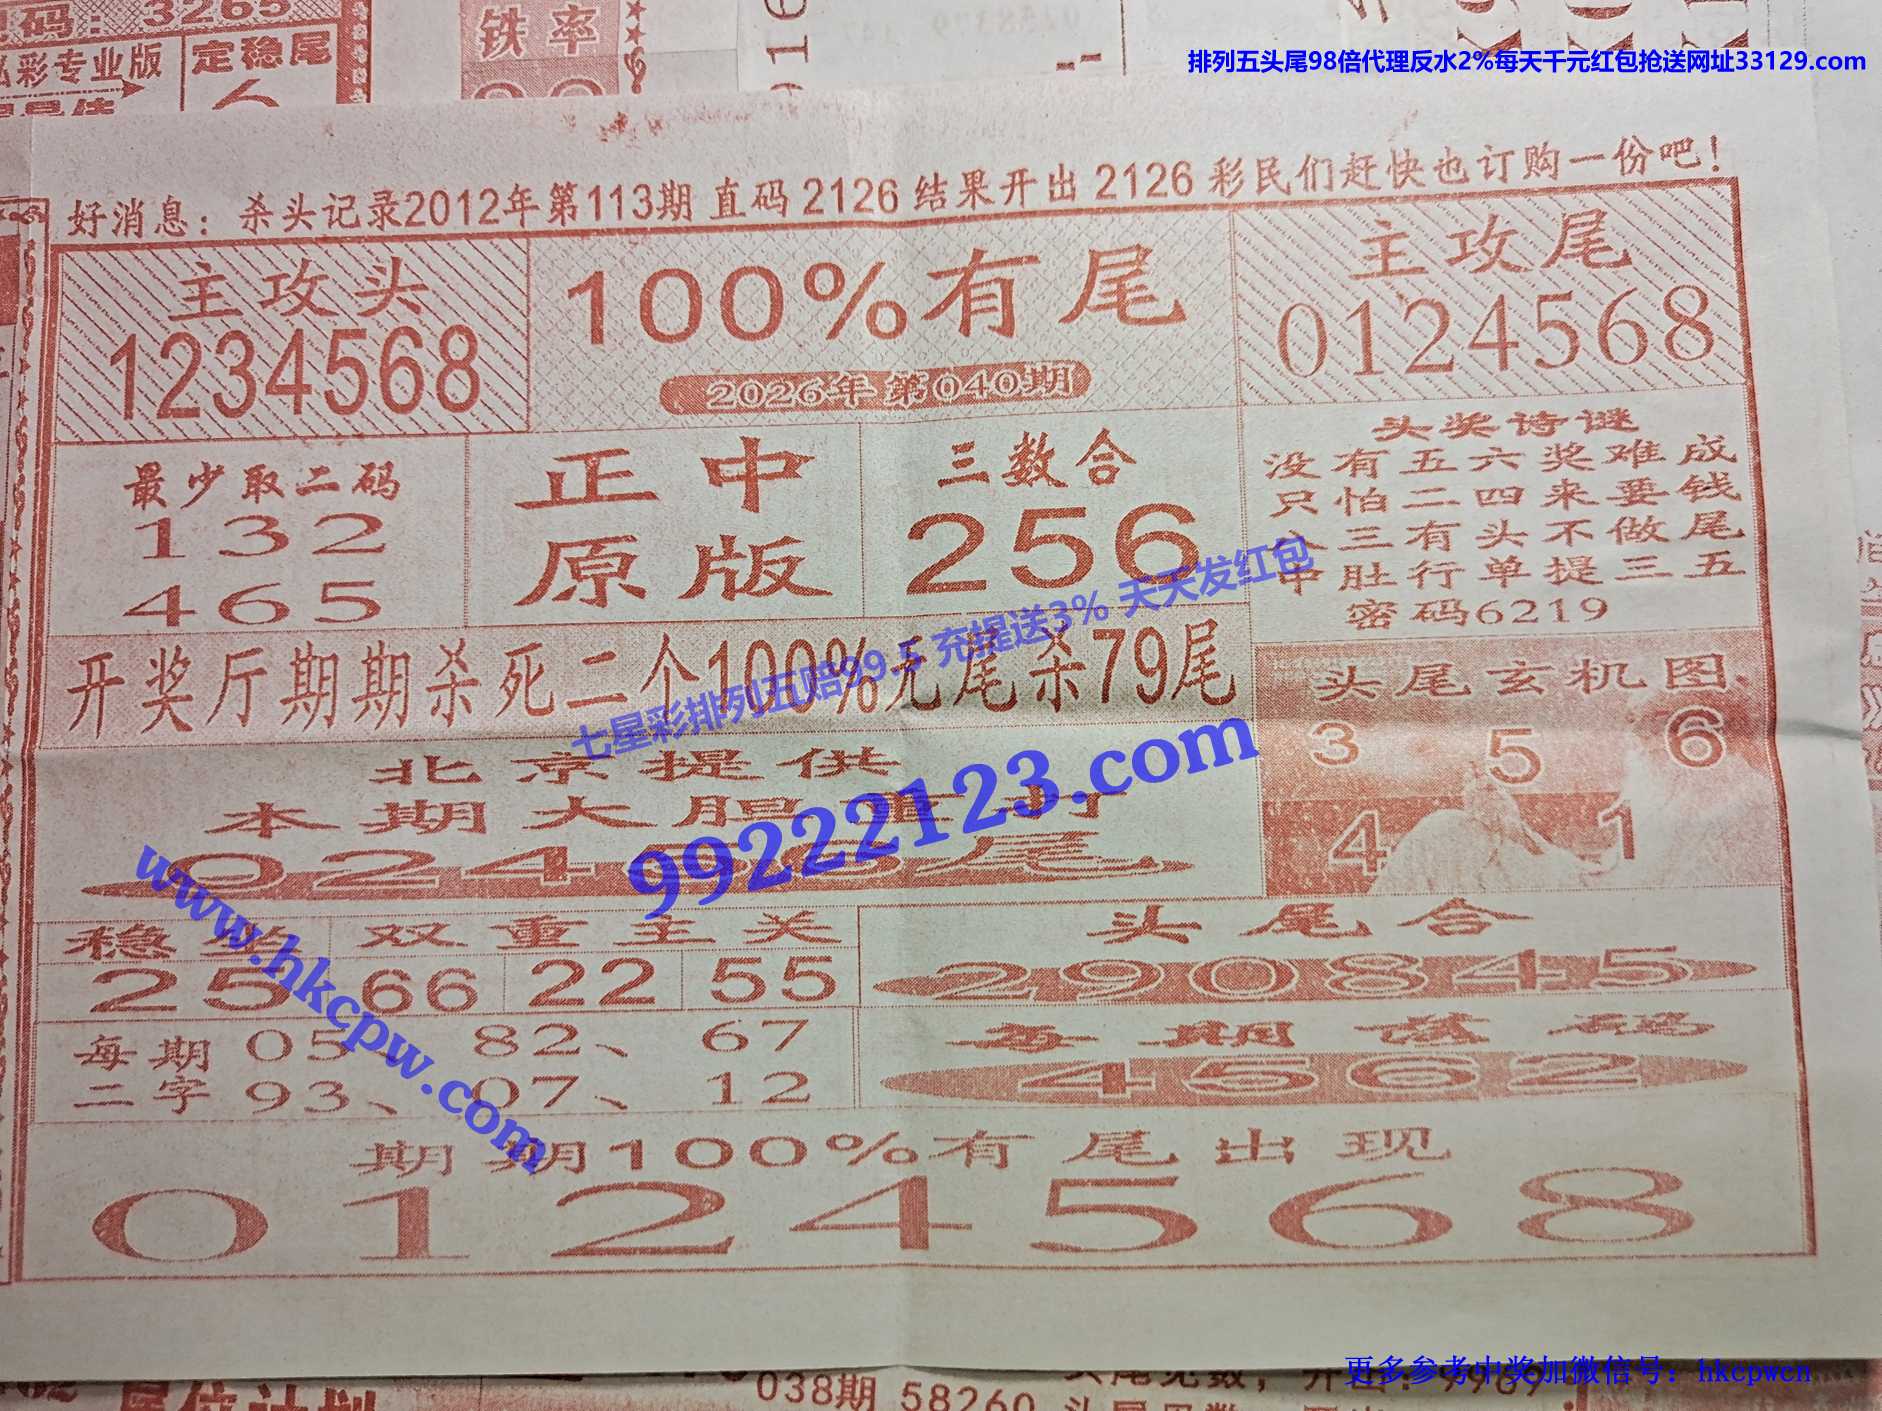 码：3265
彩专业版
定稳尾
铁率
排列五头尾98倍代理反水2%每天千元红包抢送网址33129.com
好消息：杀头记录2012年第113期 直码 2126 结果开出 2126 彩民们赶快也订购一份吧！
主攻头
1234568
100%有尾
2026年第040期
主攻尾
0124568
最少取二码
132
465
正中
原版
三数合
256
头奖诗谜
没有五六奖难成
只怕二四来要钱
三有头不做尾
中肚行单提三五
密码6219
开奖厅期期杀死二个100%无尾杀79尾
七星彩排列五赔99.5 充提送3% 天天发红包
99222123.com
头尾玄机图
3 5 6
4 1
北京提供
本期大胆
尾
www.hkcpw.com
稳
25
双重主关
66 22 55
头尾合
290845
每期 05、82、67
二字 93、07、12
每期落码
4562
期期100%有尾出现
0124568
更多参考中奖加微信号：hkcpwcn
038期 58260